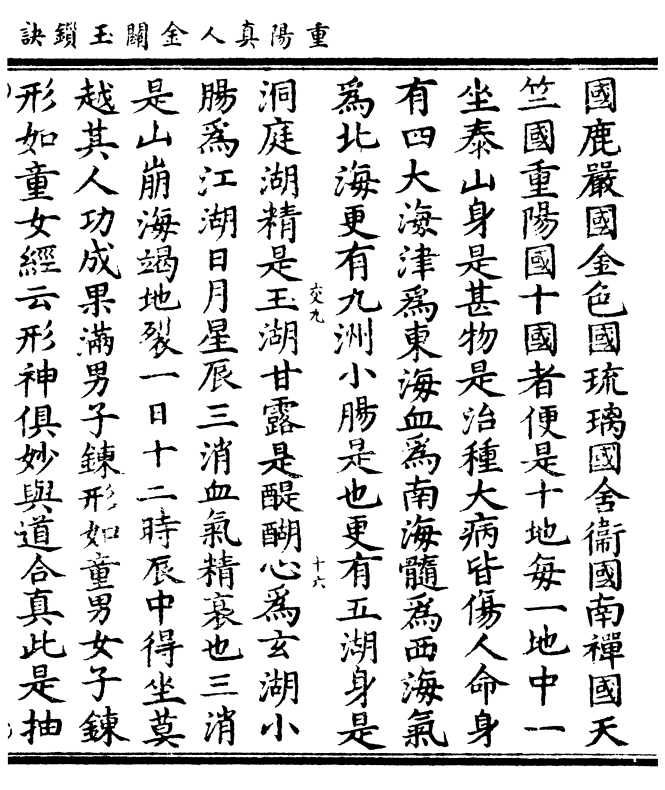 重陽真人金關玉鎖訣
國鹿嚴國金色國琉璃國舍衞國南禪國天
竺國重陽國十國者便是十地每一地中一
坐泰山身是甚物是治種大病皆傷人命身
有四大海津爲東海血爲南海髓爲西海氣
爲北海更有九洲小腸是也更有五湖身是
交九
十六
洞庭湖精是玉湖甘露是醍醐心爲玄湖小
腸爲江湖日月星辰三消血氣精衰也三消
是山崩海竭地裂一日十二時辰中得坐莫
越其人功成果滿男子鍊形如童男女子鍊
形如童女經云形神俱妙與道合真此是抽